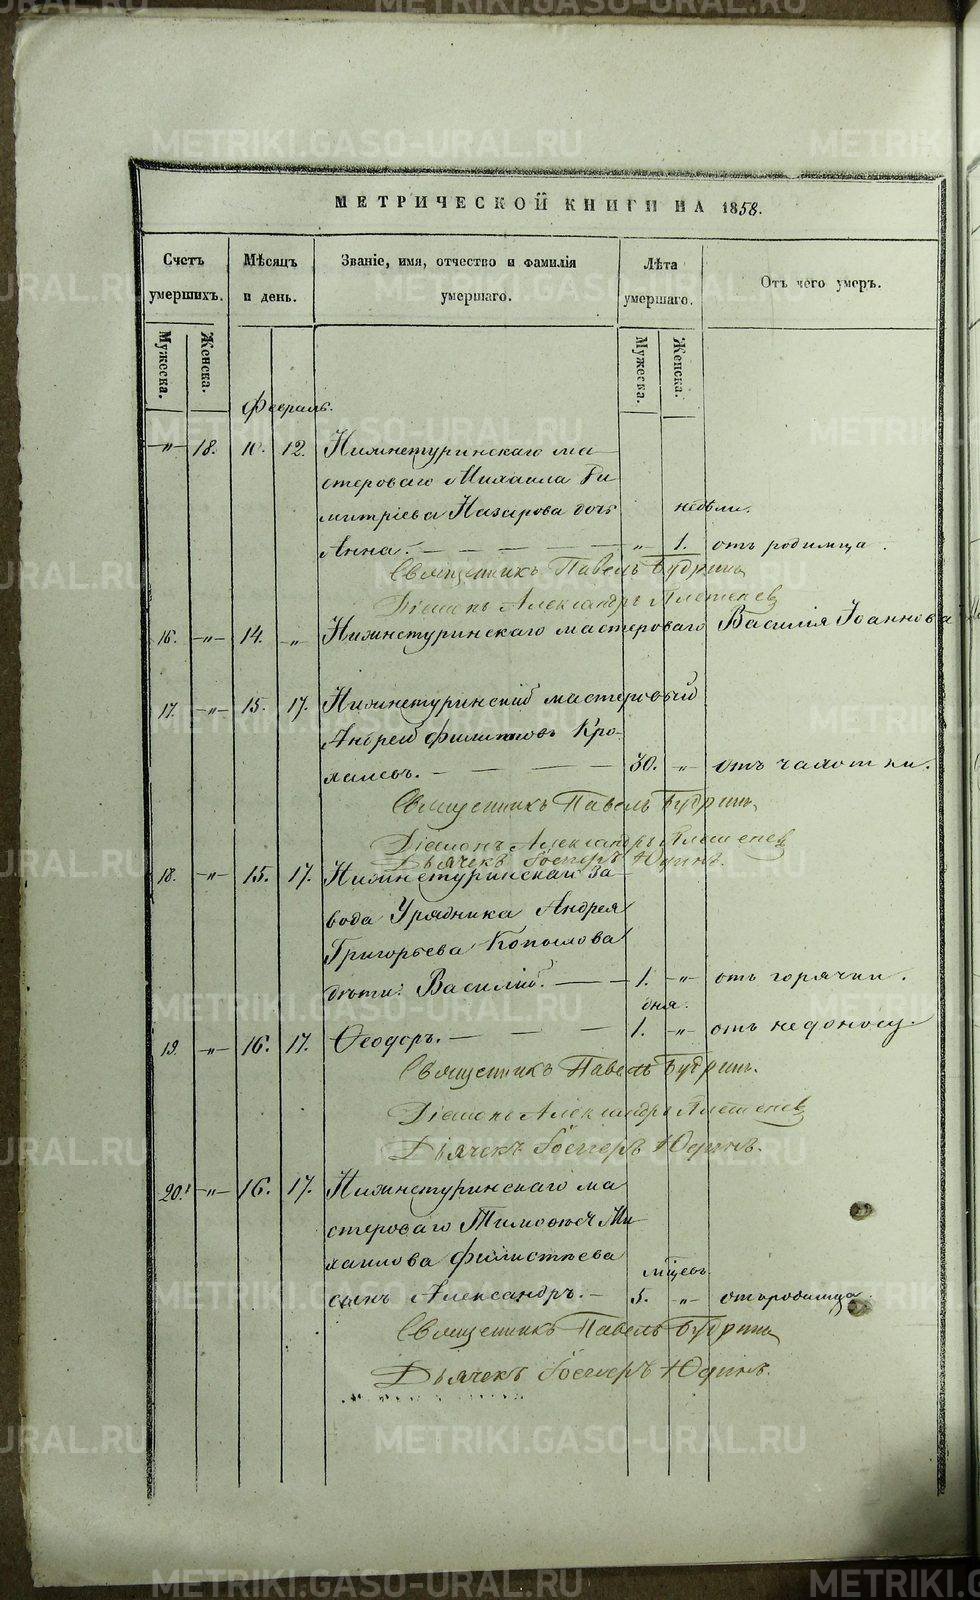 МЕТРИЧЕСКОЙ КНИГИ НА 1858.
Счетъ умершихъ.
Мѣсяцъ и день.
Званіе, имя, отчество и фамилія умершаго.
Лѣта умершаго.
Отъ чего умеръ.
Мужеска. Женска.
Мужеска. Женска.
Февраль.
" 18. 10. 12. Нижнетуринскаго ма-
стероваго Михаила Ди
митріева Назарова дочь недѣли.
Анна. " 1. отъ родимца.
Священникъ Павелъ Будринъ
Діаконъ Александръ Плетеневъ
16. " 14. " Нижнетуринскаго мастероваго Василія Іоаннова
17. " 15. 17. Нижнетуринскій мастеровый
Андрей Филиповъ Кро-
халевъ. 30. " отъ чахотки.
Священникъ Павелъ Будринъ
Діаконъ Александръ Плетеневъ
Дьячекъ Юдинъ.
18. " 15. 17. Нижнетуринскаго за-
вода Урядника Андрея
Григорьева Копылова
дѣти: Василій. 1. " отъ горячки.
дня.
19. " 16. 17. Ѳеодоръ. 1. " отъ недоносу.
Священникъ Павелъ Будринъ.
Діаконъ Александръ Плетеневъ
Дьячекъ Юдинъ.
20. " 16. 17. Нижнетуринскаго ма
стероваго Тимоѳея Ми-
хаилова Филистѣева мцевъ.
сынъ Александръ. 5. " отъ родимца.
Священникъ Павелъ Будринъ
Дьячекъ Юдинъ.
METRIKI.GASO-URAL.RU